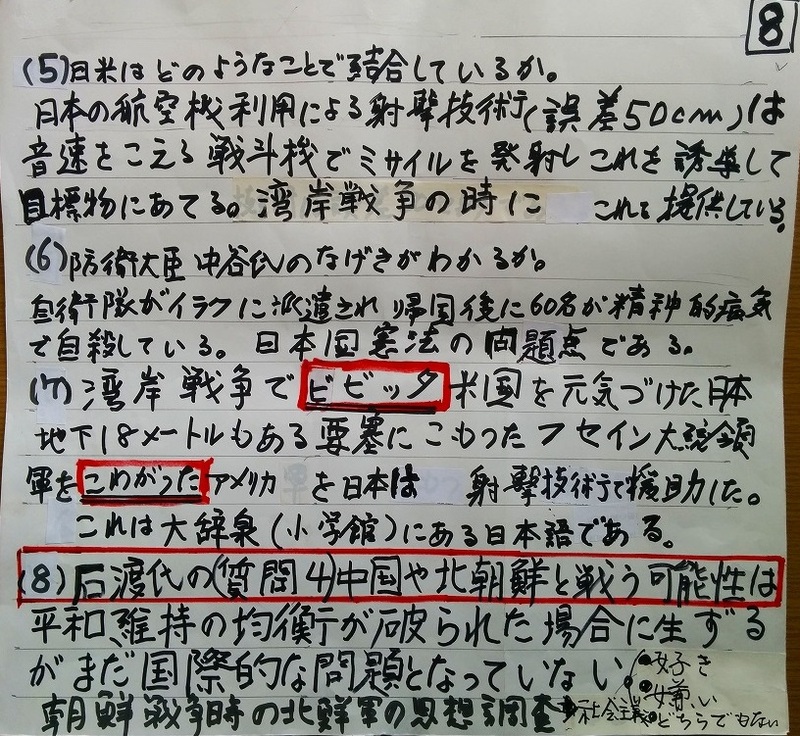 8
(5)日米はどのようなことで結合しているか。
日本の航空機利用による射撃技術(誤差50cm)は
音速をこえる戦斗機でミサイルを発射しこれを誘導して
目標物にあてる。湾岸戦争の時に これを提供している。
(6)防衛大臣中谷氏のなげきがわかるか。
自衛隊がイラクに派遣され帰国後に60名が精神的病気
で自殺している。日本国憲法の問題点である。
(7)湾岸戦争でビビック米国を元気づけた日本
地下18メートルもある要塞にこもったフセイン大統領
軍をこわがったアメリカ を日本は 射撃技術で援助した。
これは大辞泉(小学館)にある日本語である。
(8)石渡代の(質問4)中国や北朝鮮と戦う可能性は
平和維持の均衡が破られた場合に生ずる
がまだ国際的な問題となっていない
朝鮮戦争時の北鮮軍の思想調査 社会主義
●好き
●嫌い
●どちらでもない